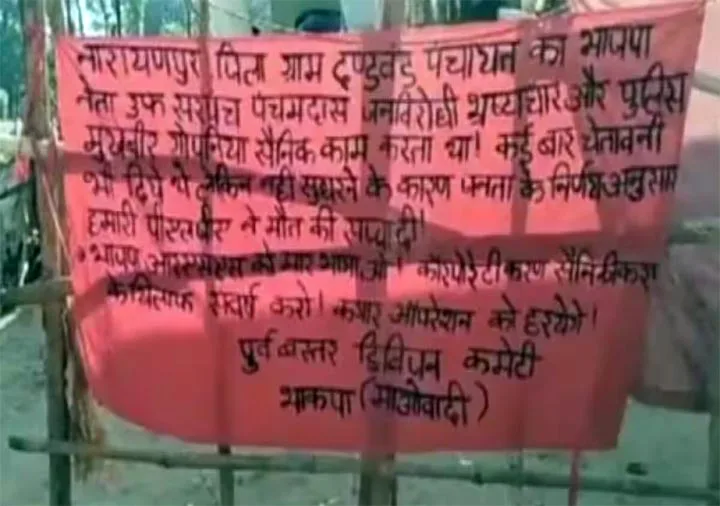 नारायणपुर पिला ग्राम दण्डवंड पंचायत का भाजपा
नेता उफ सरपंच पंचमदास जनविरोधी भ्रष्टाचार और पुलिस
मुखबीर गोपनिया सैनिक काम करता था। कई बार चेतावनी
भी दिये थे लेकिन नही सुधरने के कारण जनता के निर्णय अनुसार
हमारी पीएलजीए ने मौत की सजा दी।
• भाजपा आरएसएस को मार भगाओ। कॉरपोरेटीकरण सैनिकीकरण
के खिलाफ संघर्ष करो। कगार ऑपरेशन को हरायेंगे।
पुर्व बस्तर डिविजन कमेटी
भाकपा (माओवादी)